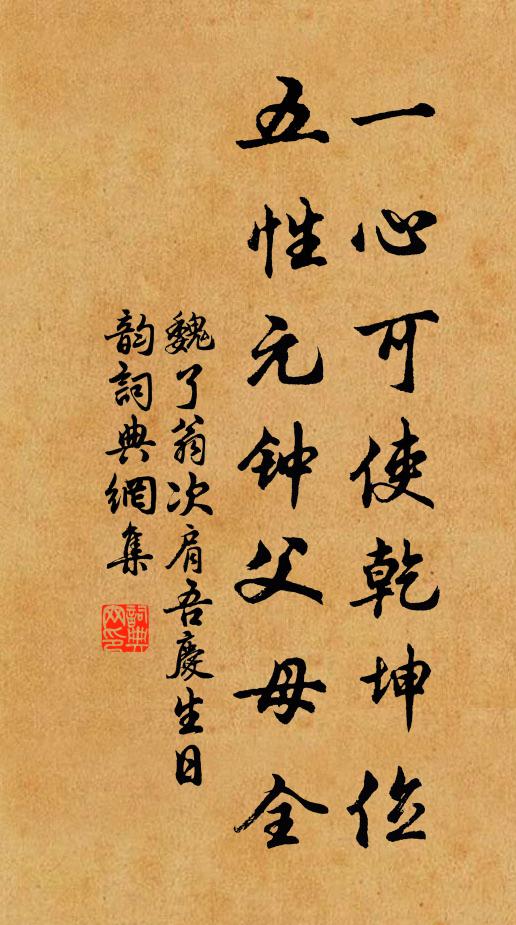 一心可使乾坤位
五性元钟父母全
魏了翁次肩吾慶生日
韵詞典網集
詞典
网印